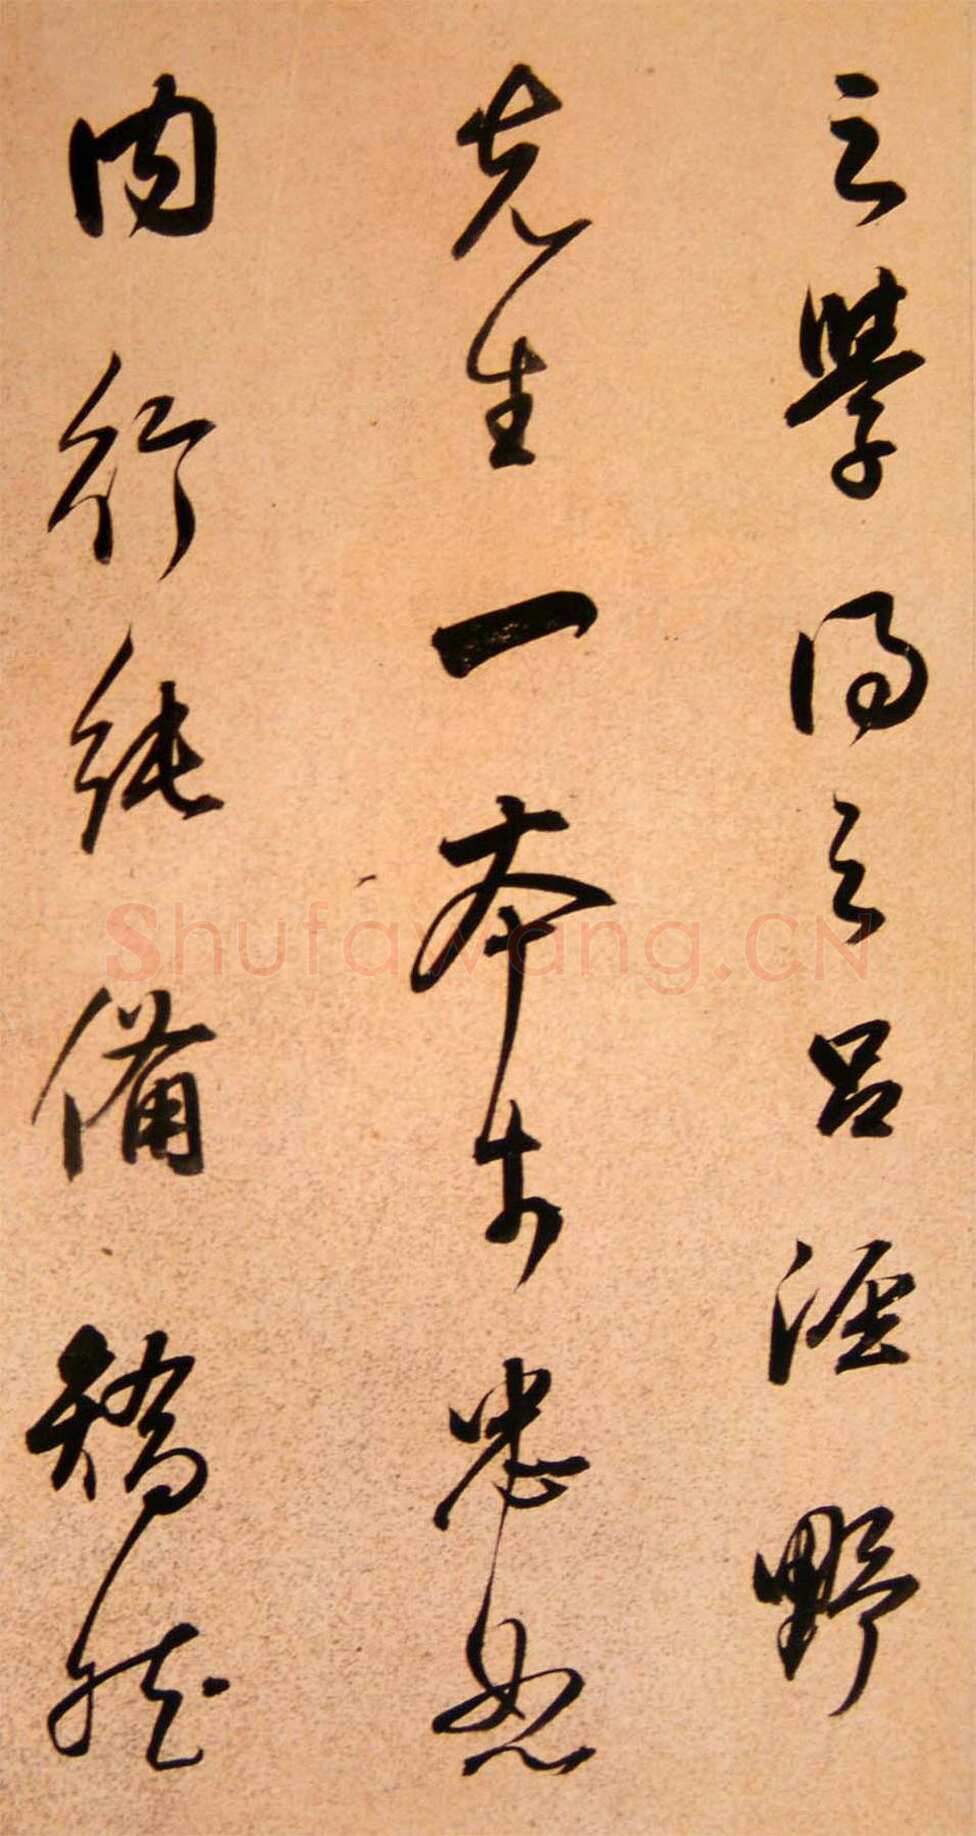 之學得之呂涇野
先生一本於忠恕
內行純備矯然
Shufawang.CN